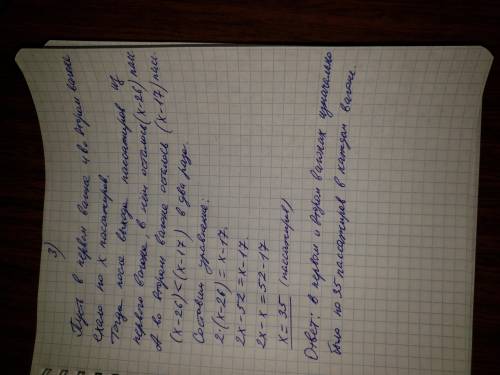 3)
Пусть в первом вагоне и во втором вагоне
ехало по x пассажиров.
Тогда после выхода пассажиров из
первого вагона в нём осталось (x-26) пасс.
А во втором вагоне осталось (x-17) пасс.
(x-26) < (x-17) в два раза.
Составим уравнение:
2·(x-26) = x-17.
2x-52 = x-17.
2x-x = 52-17
x = 35 (пассажиров)
Ответ: в первом и втором вагонах изначально
было по 35 пассажиров в каждом вагоне.